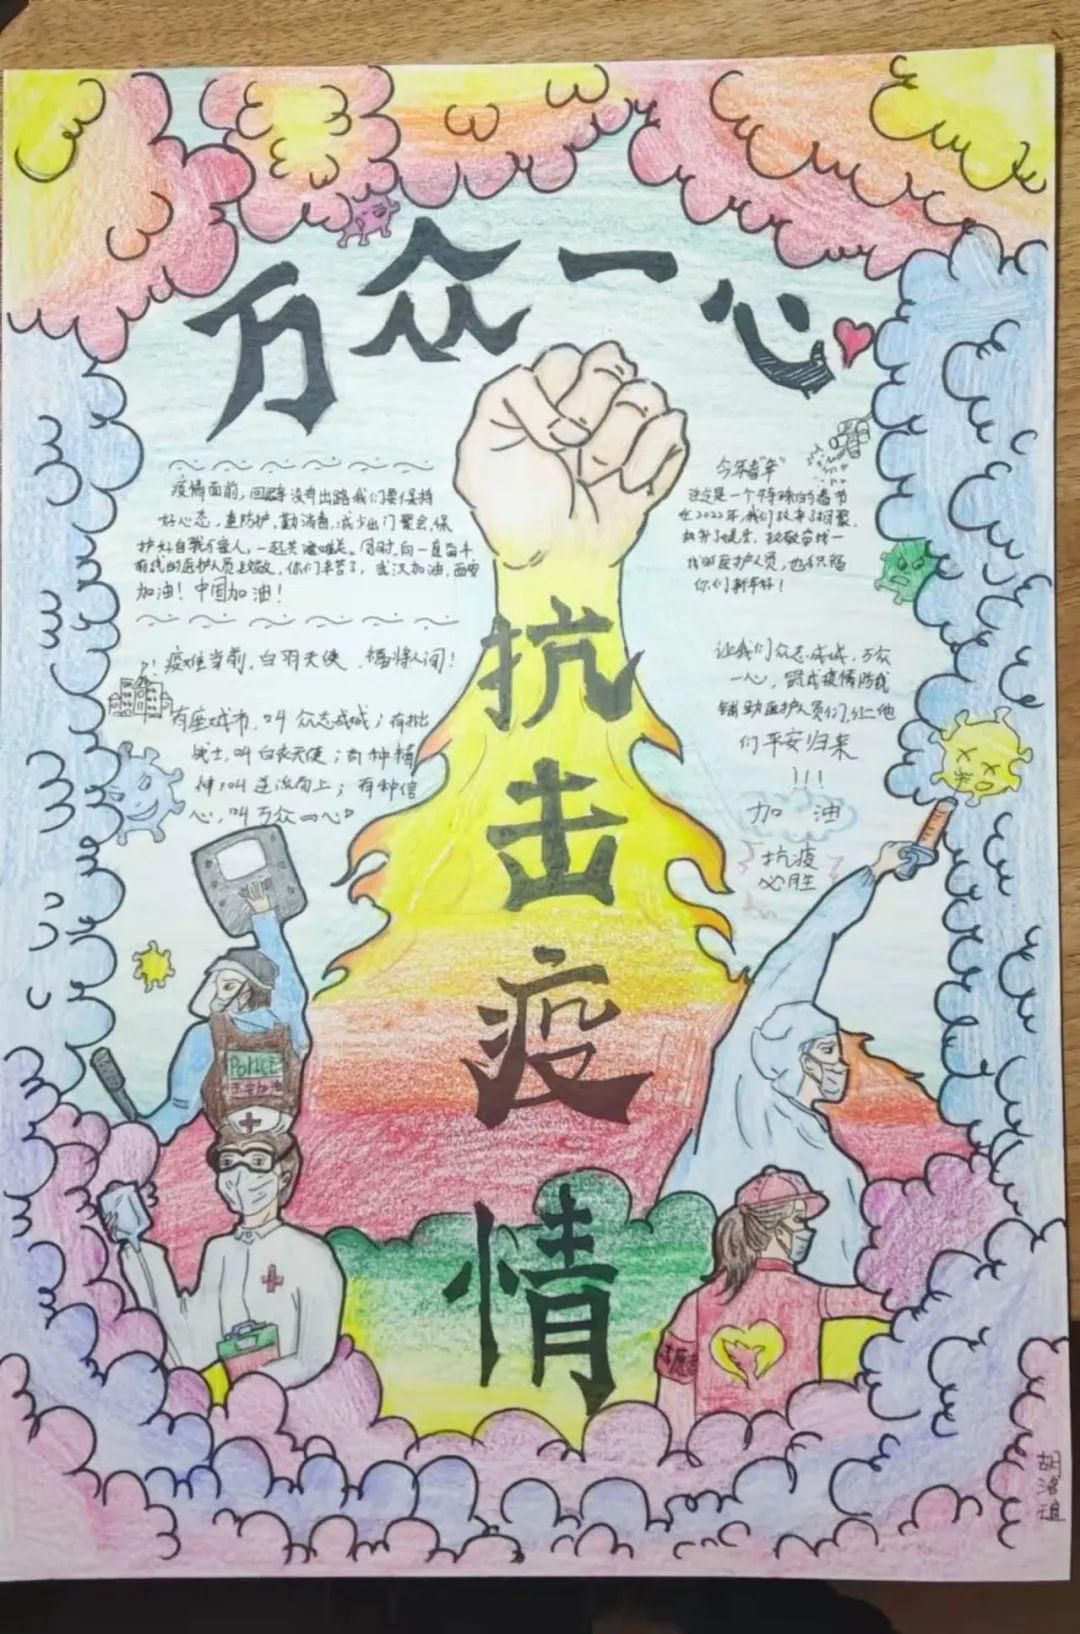 万众一心
疫情面前，回避没有出路我们要保持
好心态，重防护，勤消毒，减少出门聚会，保
护好自我与家人，一起共渡难关。同时，向一直奋斗
前线的医护人员致敬，你们辛苦了，武汉加油，西安
加油！中国加油！
疫难当前，白羽天使，福将人间！
有座城市，叫众志成城；有批
战士，叫白衣天使；有种精
神，叫逆流而上；有种信
心，叫万众一心
今年春"年"
注定是一个特殊的春节
在2022年，我们放弃了相聚，
致敬奋战一
线的医护人员，也祝福
你们新年好！
让我们众志成城，万众
一心，筑成疫情防线
辅助医护人员们，让他
们平安归来
!!!
加油
抗疫
必胜
抗击疫情
POLICE
胡